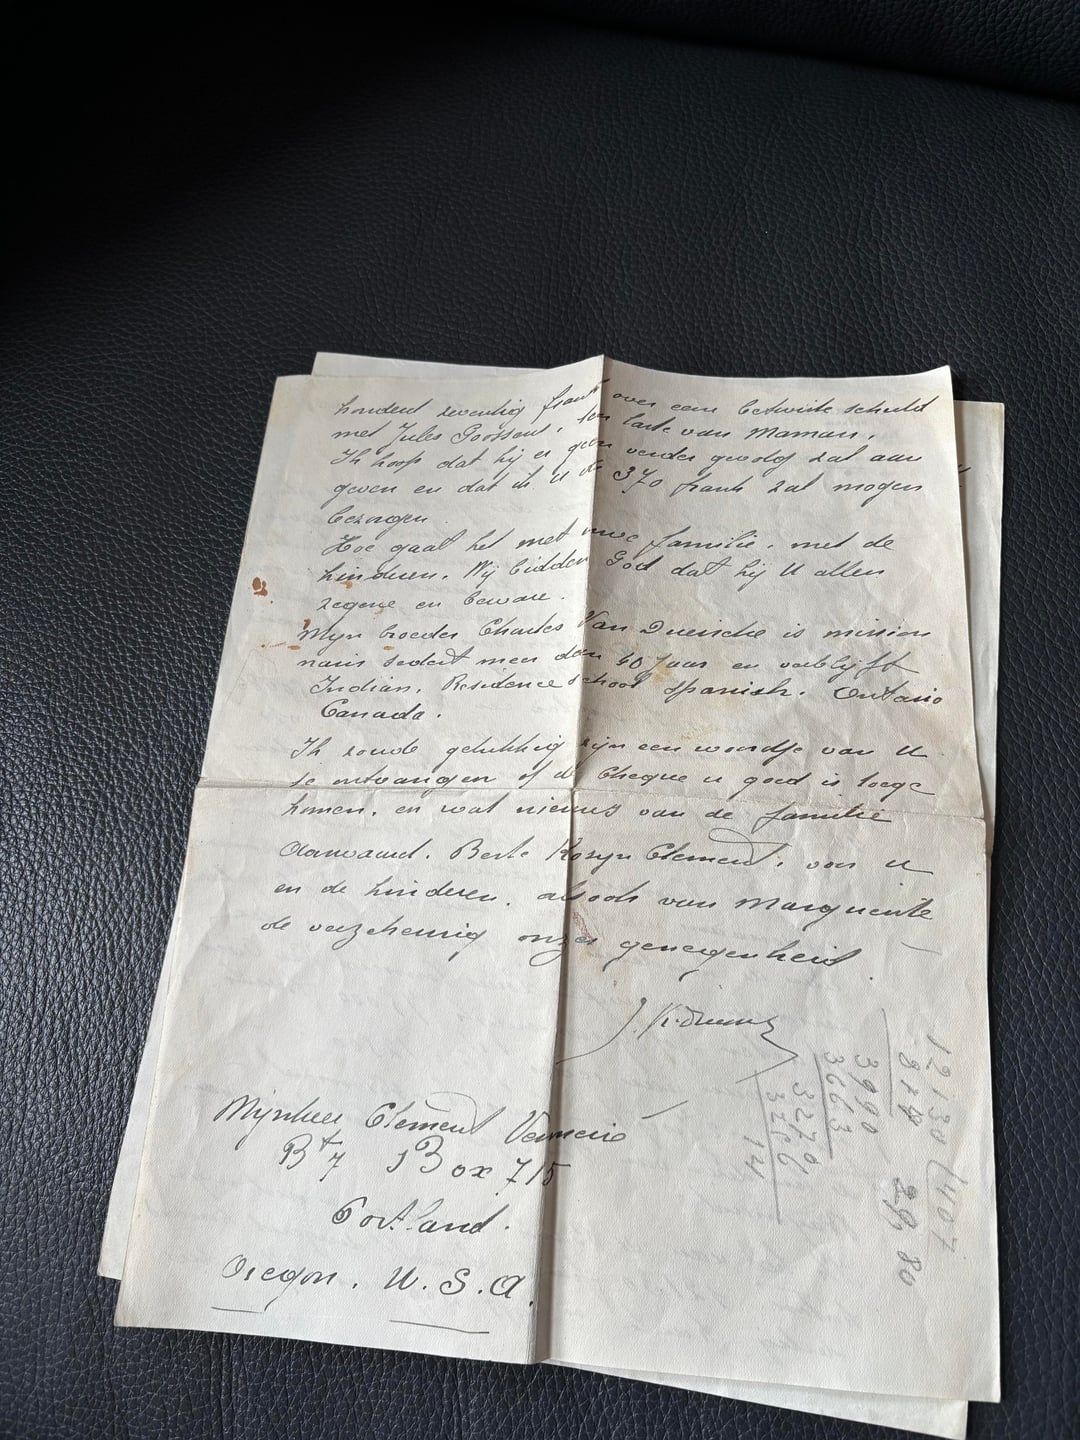 honderd zeventig frank over een betwiste schuld
met Jules Goossens, ten laste van Maman.
Ik hoop dat hij er geen verder gevolg zal aan
geven en dat ik U de 370 frank zal mogen
bezorgen
Hoe gaat het met uwe familie, met de
kinderen. Wij bidden God dat hij U allen
zegene en beware.
Mijn broeder Charles Van is mission
naris sedert meer dan 40 Jaar en verblijft
Indian. Residence school Spanish. Ontario
Canada.
Ik zoude gelukkig zijn een woordje van U
te ontvangen of de Cheque u goed is toege
komen, en wat nieuws van de familie
Aanvaard. Beste Kozyn Clement, voor U
en de kinderen, alsook van Marguerite
de verzekering onzer genegenheid.
Mynheer Clement
Rt 7 Box 715
Portland.
Oregon. U.S.A.
12130 407
814
3990
3663
3270
3256
14
29 80